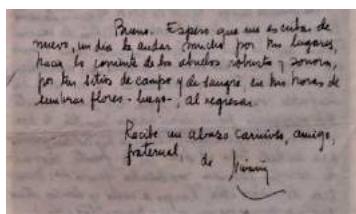 Bueno. Espero que me escribas de
nuevo, un día de andar mucho por tus lugares,
hacia la corriente de los abuelos robusta y sonora,
por tus sitios de campo y de sangre, en tus horas de
sembrar flores - luego -, al regresar.
Recibe un abrazo , amigo,
fraternal, de